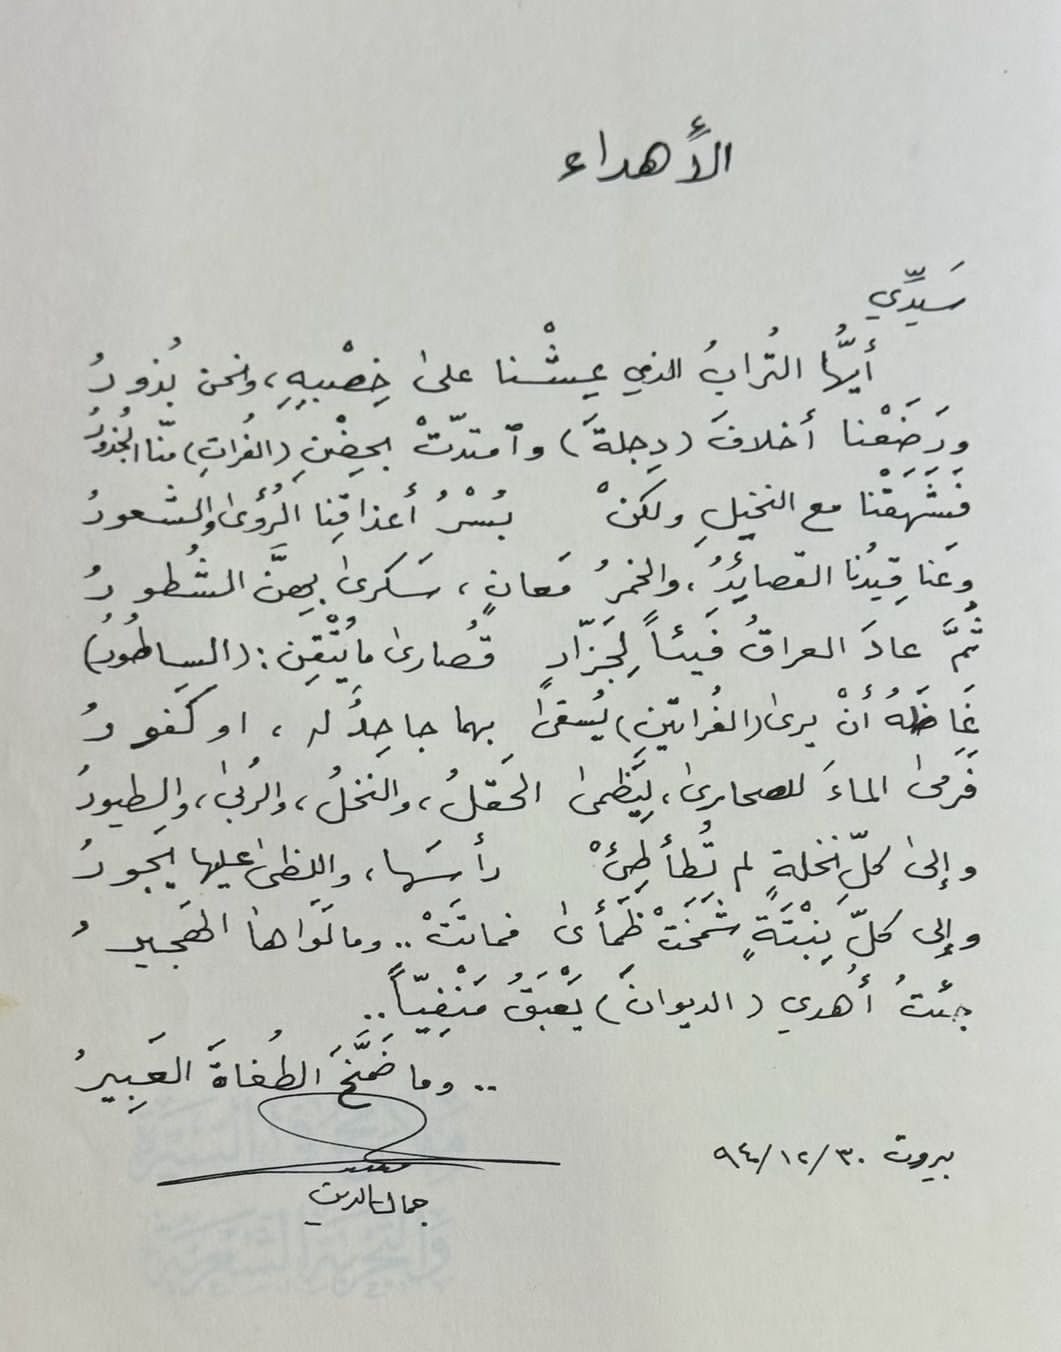 الأهداء
سَيِّدي
أيُّها التُرابُ الذي عِيشْنا على خِصْبِهِ، ونحن بُذورُ
ورَضَعْنا أخلافَ (دِجلةَ) وٱمتدّتْ بحِضْنِ (الفُراتِ) منّا الجُذورُ
فَشَهَقْنا مع النخيلِ ولكنْ بُسْرُ أعذاقِنا الرُؤى والشعورُ
وعَناقِيدُنا القصائِدُ، والخمرُ مَعانٍ، سَكرى بِهِنَّ الشُطورُ
ثُمَّ عادَ العراقُ فَيئاً لِجَزّارٍ قُصارى ما يُتْقِن: (الساطُورُ)
غَاظَهُ أنْ يرى (الفُراتَينِ) يُسقى بهما جاحِدٌ له، او كَفورُ
فَرَمى الماءَ للصحارى، لِيَظمى الحَقلُ، والنخلُ، والرُبى، والطيورُ
وإلى كلِّ نخلةٍ لم تُطأطِئْ رأسَها، واللظى عليها يجورُ
وإلى كلِّ نِبْتَةٍ شَمَخَتْ ظَمأى فماتَتْ.. وما لَوَاها الهَجيرُ
جئتُ أُهدي (الديوانَ) يَعْبَقُ مَنْفِيّاً..
.. وَما ضَمَّخَ الطُغاةَ العَبِيرُ
بيروت ٩٤/١٢/٣٠
جمال الدين